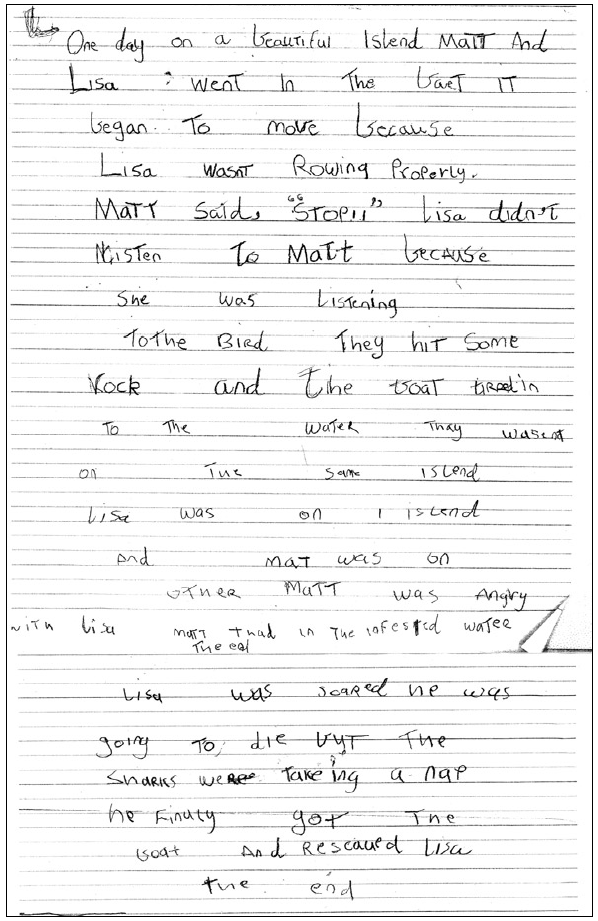 One day on a beautiful Islend Matt And
Lisa went In The baet IT
began To move because
Lisa wasnt Rowing Properly.
Matt Said, "STOP!!" Lisa didn't
listen To Matt because
She was Listening
To The Bird They hit Some
Rock and the boat in
To The water Thay wasent
on The same islend
Lisa was on 1 islend
And mat was on
other Matt was Angry
with lisa matt in The infested water
Lisa was scared he was
going To, die but The
Sharks were takeing a nap
he Finaly got The
boat And Rescaued Lisa
the end